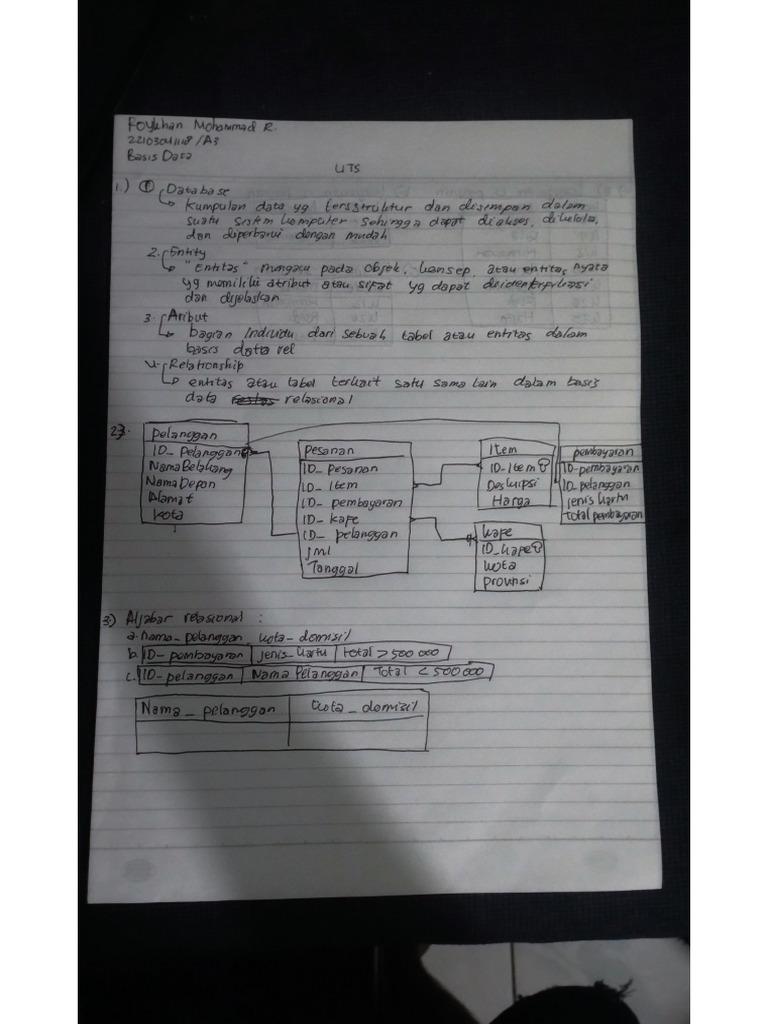 Mohammad R.
/A3
Basis Data
UTS
1.) 1. Database
Kumpulan data yg terstruktur dan disimpan dalam
suatu sistem komputer sehingga dapat diakses, dikelola,
dan diperbarui dengan mudah
2. Entity
"Entitas" mengacu pada objek, konsep, atau entitas nyata
yg memiliki atribut atau sifat yg dapat
dan dijelaskan
3. Aribut
bagian individu dari sebuah tabel atau entitas dalam
basis data rel
4. Relationship
entitas atau tabel terkait satu sama lain dalam basis
data relasional
2.)
Pelanggan
ID_pelanggan
Nama Belakang
Nama Depan
Alamat
Kota
Pesanan
ID_pesanan
ID_item
ID_pembayaran
ID_kafe
ID_pelanggan
jml
Tanggal
Item
ID-Item
Deskripsi
Harga
Kafe
ID_kafe
Kota
provinsi
pembayaran
ID-pembayaran
ID-pelanggan
jenis kartu
total pembayaran
3.) Aljabar relasional :
a. nama_pelanggan, kota_domisil
b. ID-pembayaran jenis_kartu total > 500 000
c. ID-pelanggan Nama Pelanggan Total < 500 000
Nama_pelanggan kota_domisil